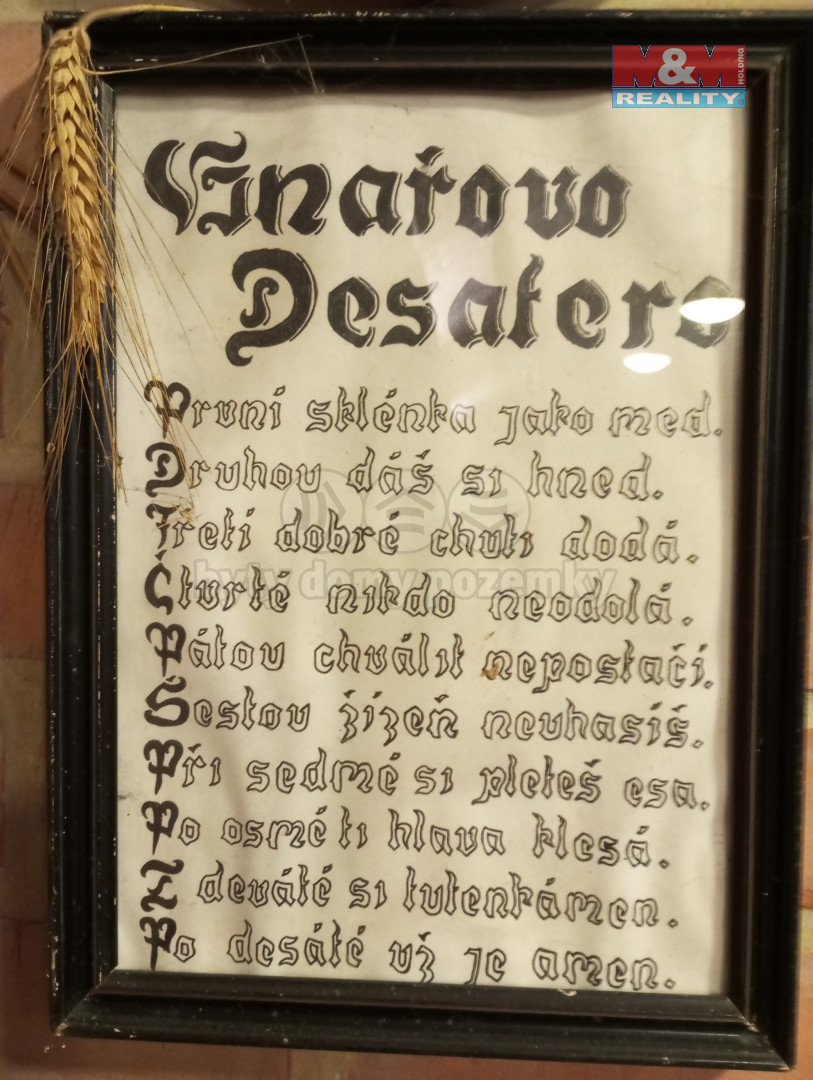 M&M HOLDING
REALITY
Vinařovo
Desatero
První sklénka jako med.
Druhou dáš si hned.
Třetí dobré chuti dodá.
Čtvrté nikdo neodolá.
Pátou chválit nepostačí.
Šestou žízeň neuhasíš.
Při sedmé si pleteš esa.
Po osmé ti hlava klesá.
Z deváté si tutenkámen.
Po desáté už je amen.
byty domy pozemky